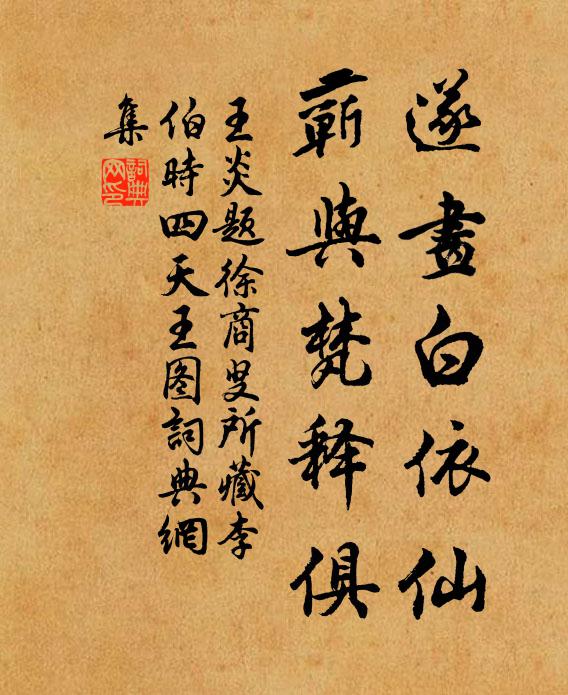 遂畫白依仙
蕲與梵释俱
王炎题徐商叟所藏李
伯時四天王图詞典網
集
詞典
网印